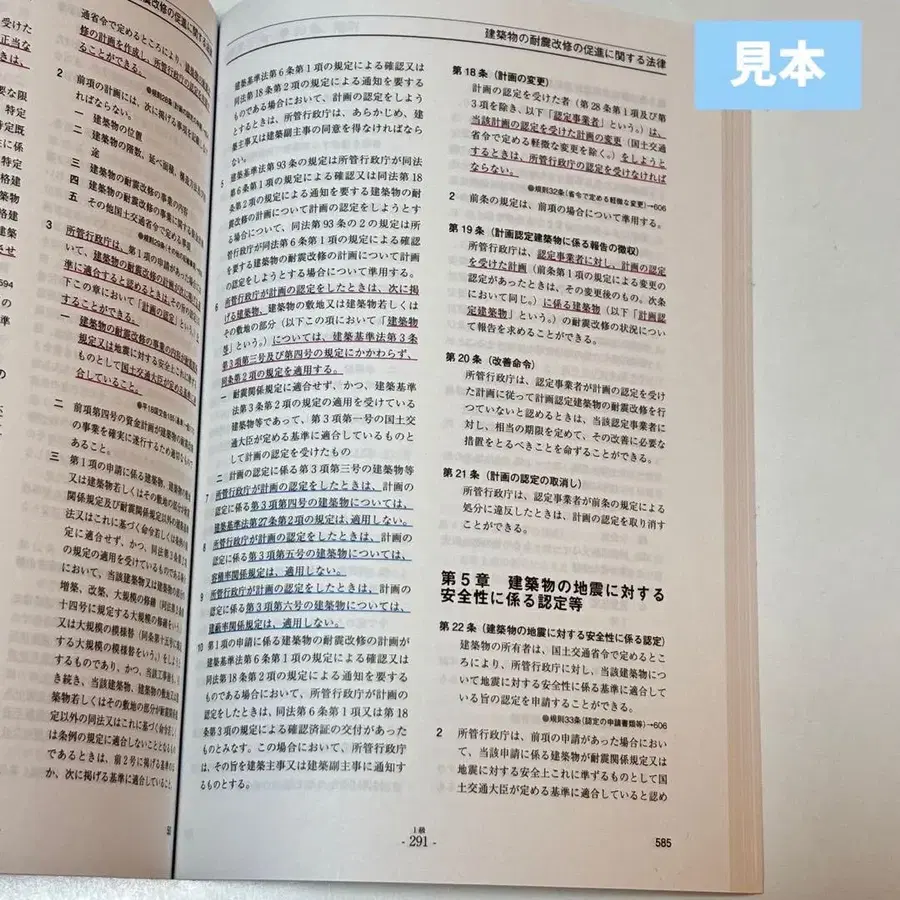 見本
耐震改修の促進に関する法律
受けた
正当な
きは、
要な限
特定
特定既
に係る
特定
格建
築物
格建
築を
させ
594
省令で定めるところにより、
修の計画を作成し、所管行政庁の認定を
ることができる。
2 前項の計画には、次に掲げる事項を記載しなけ
ればならない。
一 建築物の位置
二 建築物の階数、延べ面積、構造方法及び用
途
三 建築物の耐震改修の事業の内容
四 建築物の耐震改修の事業に関する資金計画
五 その他国土交通省令で定める事項
3 所管行政庁は、第1項の申請があった場合にお
いて、建築物の耐震改修の計画が次に掲げる基
準に適合すると認めるときは、その旨の認定(以
下この章において「計画の認定」という。)を
することができる。
一 建築物の耐震改修の事業の内容が耐震関係
規定又は地震に対する安全上これに準ずる
ものとして国土交通大臣が定める基準に適
合していること。
二 前項第四号の資金計画が建築物の耐震改修
の事業を確実に遂行するため適切なもので
あること。
三 第1項の申請に係る建築物、建築物の敷地
又は建築物若しくはその敷地の部分が耐震
関係規定及び耐震関係規定以外の建築基準
法又はこれに基づく命令若しくは条例の規
定に適合せず、かつ、同法第3条第2項
の規定の適用を受けているものである場合
において、当該建築物又は建築物の部分の
増築、改築、大規模の修繕(同法第2条第
十四号に規定する大規模の修繕をいう。)
又は大規模の模様替(同条第十五号に規定
する大規模の模様替をいう。)をしようと
するものであり、かつ、当該工事後も、引
き続き、当該建築物、建築物の敷地又は建
築物若しくはその敷地の部分が耐震関係規
定以外の同法又はこれに基づく命令若しく
は条例の規定に適合しないこととなるもの
であるときは、前2号に掲げる基準のほ
か、次に掲げる基準に適合していること。
建築物の耐震改修の促進に関する法律
建築基準法第6条第1項の規定による確認又は
同法第18条第2項の規定による通知を要する
ものである場合において、計画の認定をしよう
とするときは、所管行政庁は、あらかじめ、建
築主事又は建築副主事の同意を得なければなら
ない。
5 建築基準法第93条の規定は所管行政庁が同法
第6条第1項の規定による確認又は同法第18
条第2項の規定による通知を要する建築物の耐
震改修の計画について計画の認定をしようとす
る場合について、同法第93条の2の規定は所
管行政庁が同法第6条第1項の規定による確認
を要する建築物の耐震改修の計画について計画
の認定をしようとする場合について準用する。
6 所管行政庁が計画の認定をしたときは、次に掲
げる建築物、建築物の敷地又は建築物若しくは
その敷地の部分(以下この項において「建築物
等」という。)については、建築基準法第3条
第3項第三号及び第四号の規定にかかわらず、
同条第2項の規定を適用する。
一 耐震関係規定に適合せず、かつ、建築基準
法第3条第2項の規定の適用を受けている
建築物等であって、第3項第一号の国土交
通大臣が定める基準に適合しているものと
して計画の認定を受けたもの
二 計画の認定に係る第3項第三号の建築物等
7 所管行政庁が計画の認定をしたときは、計画の
認定に係る第3項第四号の建築物については、
建築基準法第27条第2項の規定は、適用しない。
8 所管行政庁が計画の認定をしたときは、計画の
認定に係る第3項第五号の建築物については、
容積率関係規定は、適用しない。
9 所管行政庁が計画の認定をしたときは、計画の
認定に係る第3項第六号の建築物については、
建蔽率関係規定は、適用しない。
10 第1項の申請に係る建築物の耐震改修の計画が
建築基準法第6条第1項の規定による確認又は
同法第18条第2項の規定による通知を要する
ものである場合において、所管行政庁が計画の
認定をしたときは、同法第6条第1項又は第18
条第3項の規定による確認済証の交付があった
ものとみなす。この場合において、所管行政庁
は、その旨を建築主事又は建築副主事に通知す
るものとする。
第18条(計画の変更)
計画の認定を受けた者(第28条第1項及び第
3項を除き、以下「認定事業者」という。)は、
当該計画の認定を受けた計画の変更(国土交通
省令で定める軽微な変更を除く。)をしようと
するときは、所管行政庁の認定を受けなければ
ならない。
●規則32条(省令で定める軽微な変更)→606
2 前条の規定は、前項の場合について準用する。
第19条(計画認定建築物に係る報告の徴収)
所管行政庁は、認定事業者に対し、計画の認定
を受けた計画(前条第1項の規定による変更の
認定があったときは、その変更後のもの。次条
において同じ。)に係る建築物(以下「計画認
定建築物」という。)の耐震改修の状況につい
て報告を求めることができる。
第20条(改善命令)
所管行政庁は、認定事業者が計画の認定を受け
た計画に従って計画認定建築物の耐震改修を行
つていないと認めるときは、当該認定事業者に
対し、相当の期限を定めて、その改善に必要な
措置をとるべきことを命ずることができる。
第21条(計画の認定の取消し)
所管行政庁は、認定事業者が前条の規定による
処分に違反したときは、計画の認定を取り消す
ことができる。
第5章 建築物の地震に対する
安全性に係る認定等
第22条(建築物の地震に対する安全性に係る認定)
建築物の所有者は、国土交通省令で定めるとこ
ろにより、所管行政庁に対し、当該建築物につ
いて地震に対する安全性に係る基準に適合して
いる旨の認定を申請することができる。
●規則33条(認定の申請書類等)→606
2 所管行政庁は、前項の申請があった場合におい
て、当該申請に係る建築物が耐震関係規定又は
地震に対する安全上これに準ずるものとして国
土交通大臣が定める基準に適合していると認め
上級
- 291 -
585